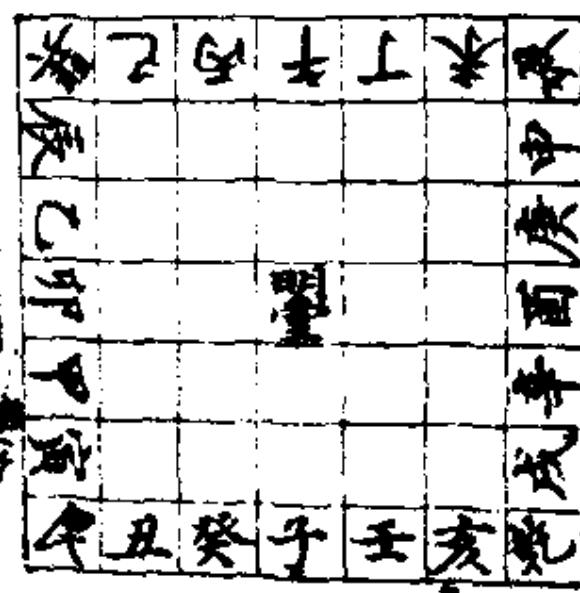 巽 巳 丙 午 丁 未 坤
辰 申
乙 庚
卯 酉
甲 辛
寅 戌
艮 丑 癸 子 壬 亥 乾